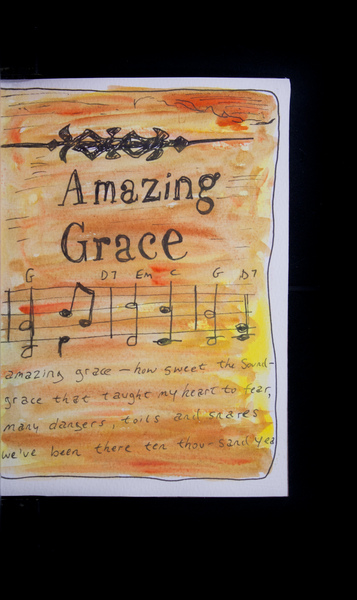 Amazing
Grace
G D7 Em C G D7
amazing grace – how sweet the sound –
grace that taught my heart to fear,
many dangers, toils and snares
we've been there ten thou-sand yea